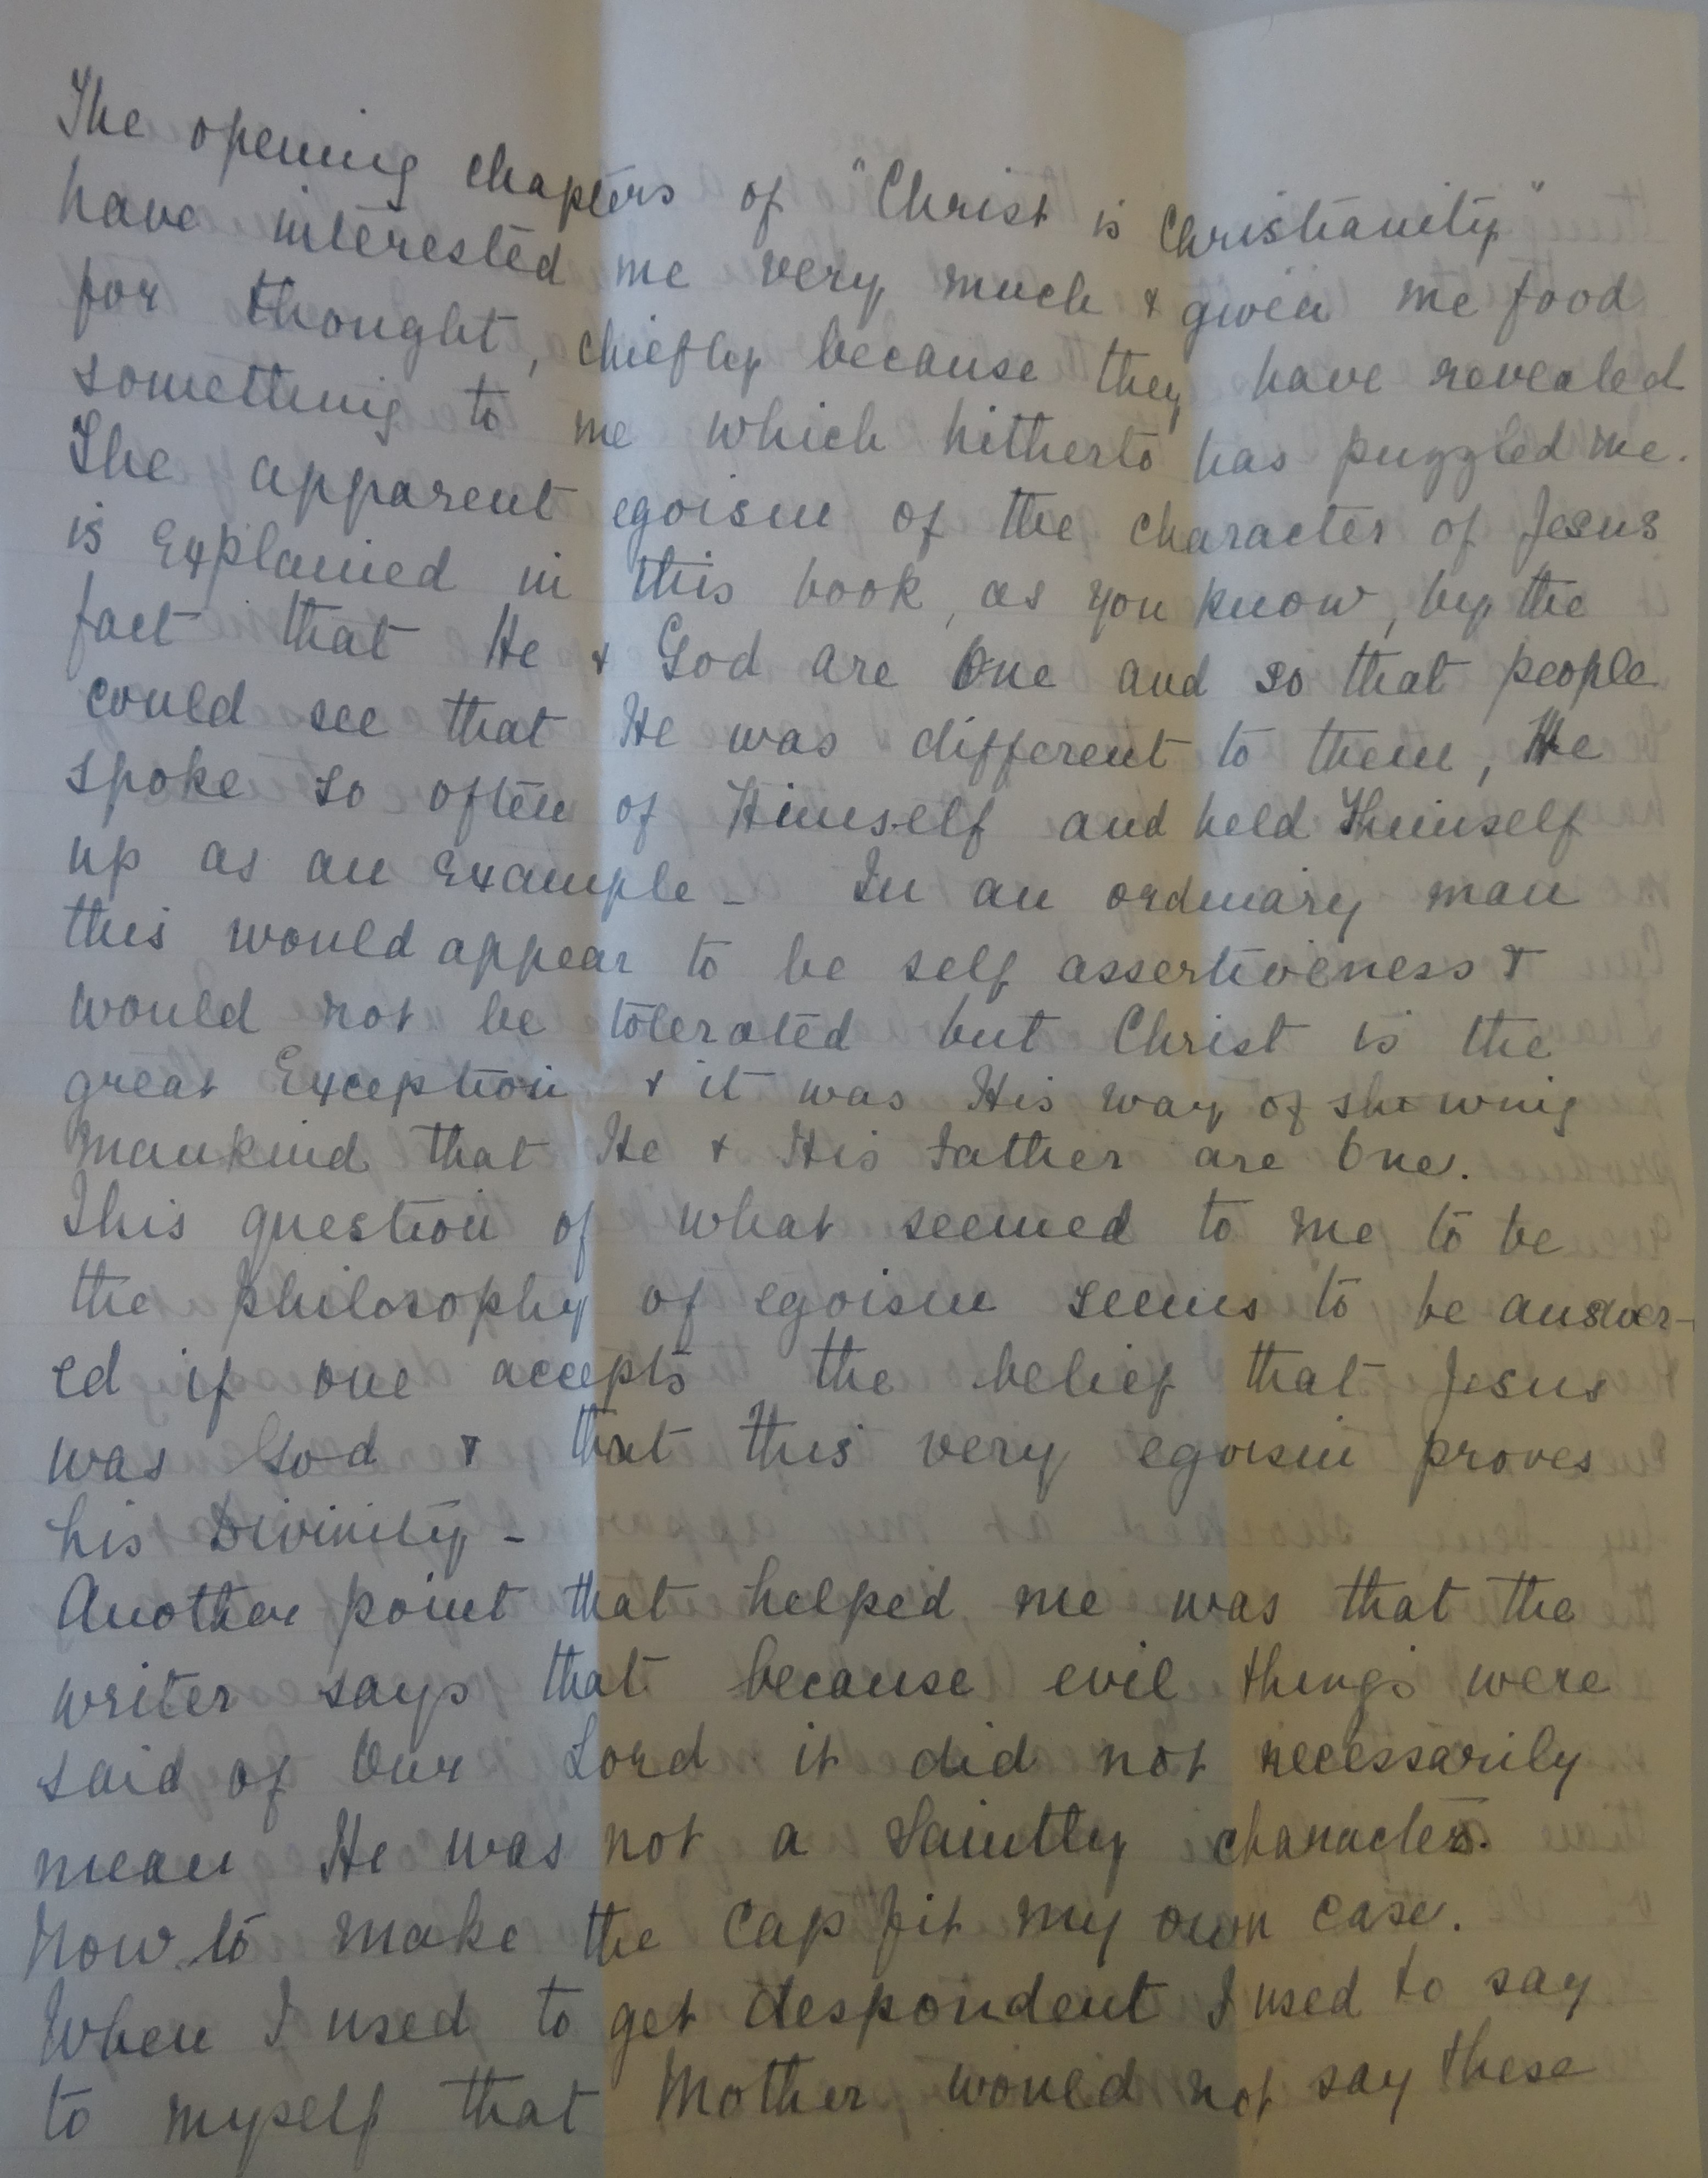 The opening chapters of "Christ is Christianity"
have interested me very much & given me food
for thought, chiefly because they have revealed
something to me which hitherto has puzzled me.
The apparent egoism of the character of Jesus
is explained in this book, as you know, by the
fact that He & God are One and so that people
could see that He was different to them, He
spoke so often of Himself and held Himself
up as an example - In an ordinary man
this would appear to be self assertiveness &
would not be tolerated but Christ is the
great Exception & it was His way of shewing
mankind that He & His Father are One.
This question of what seemed to me to be
the philosophy of egoism seems to be answer-
ed if one accepts the belief that Jesus
was God & that this very egoism proves
his Divinity -
Another point that helped me was that the
writer says that because evil things were
said of Our Lord it did not necessarily
mean He was not a Saintly character.
Now to make the cap fit my own case.
When I used to get despondent I used to say
to myself that Mother would not say these